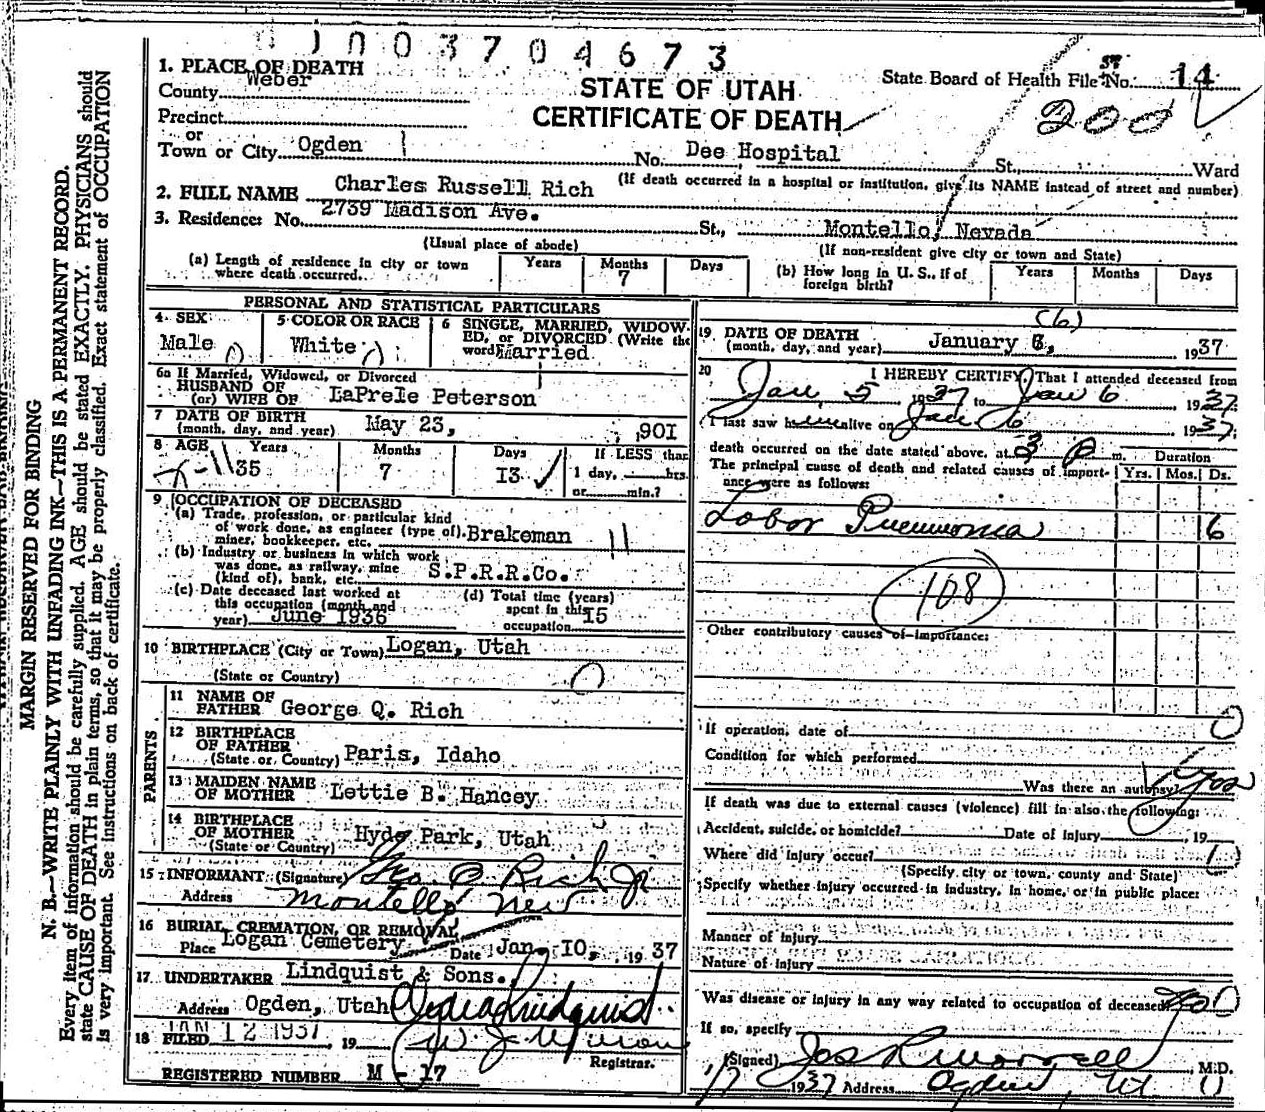 0 1 0 0 3 7 0 4 6 7 3
1. PLACE OF DEATH
County Weber
STATE OF UTAH
CERTIFICATE OF DEATH
State Board of Health File No. 14
200
Precinct
or
Town or City Ogden
No. Dee Hospital St., Ward
(If death occurred in a hospital or institution, give its NAME instead of street and number)
2. FULL NAME Charles Russell Rich
3. Residence: No. 2739 Madison Ave. St., Montello, Nevada
(Usual place of abode)
(If non-resident give city or town and State)
(a) Length of residence in city or town where death occurred Years Months 7 Days
(b) How long in U. S., if of foreign birth? Years Months Days
PERSONAL AND STATISTICAL PARTICULARS
4 SEX
Male
5 COLOR OR RACE
White
6 SINGLE, MARRIED, WIDOW-
ED, or DIVORCED (Write the
word) Married
6a If Married, Widowed, or Divorced
HUSBAND OF
(or) WIFE OF LaPrele Peterson
7 DATE OF BIRTH
(month, day, and year) May 23, ,90I
8 AGE Years 35 Months 7 Days I3
If LESS than
1 day, hrs.
or min.?
9 OCCUPATION OF DECEASED
(a) Trade, profession, or particular kind
of work done, as engineer (type of), Brakeman
miner, bookkeeper, etc.
(b) Industry or business in which work
was done, as railway, mine S.P.R.R.Co.
(kind of), bank, etc.
(c) Date deceased last worked at
this occupation (month and
year) June 1936
(d) Total time (years)
spent in this I5
occupation
10 BIRTHPLACE (City or Town) Logan, Utah
(State or Country)
PARENTS
11 NAME OF
FATHER George Q. Rich
12 BIRTHPLACE
OF FATHER
(State or Country) Paris, Idaho
13 MAIDEN NAME
OF MOTHER Lettie B. Hancey
14 BIRTHPLACE
OF MOTHER
(State or Country) Hyde Park, Utah
15 INFORMANT (Signature) Geo Q Rich Jr
Address Montello Nev
16 BURIAL, CREMATION, OR REMOVAL
Place Logan Cemetery Date Jan. I0, 19 37
17 UNDERTAKER Lindquist & Sons.
Address Ogden, Utah
18 FILED JAN 12 1937 19
Registrar.
REGISTERED NUMBER M - 17
(6)
19 DATE OF DEATH
(month, day, and year) January 6, 1937
20 I HEREBY CERTIFY, That I attended deceased from
Jan 5 1937 to Jan 6 1937
I last saw him alive on Jan 6 1937
death occurred on the date stated above, at 3 P m. Duration
The principal cause of death and related causes of import-
ance were as follows:
Yrs. Mos. Ds.
Lobor Pneumonia 6
108
Other contributory causes of importance:
If operation, date of
Condition for which performed
Was there an autopsy? yes
If death was due to external causes (violence) fill in also the following:
Accident, suicide, or homicide? Date of injury , 19
Where did injury occur?
(Specify city or town, county and State)
Specify whether injury occurred in industry, in home, or in public place:
Manner of injury
Nature of injury
Was disease or injury in any way related to occupation of deceased? no
If so, specify
(Signed) M.D.
1/7 1937 Address Ogden, Ut
MARGIN RESERVED FOR BINDING
N. B.—WRITE PLAINLY WITH UNFADING INK—THIS IS A PERMANENT RECORD.
Every item of information should be carefully supplied. AGE should be stated EXACTLY. PHYSICIANS should
state CAUSE OF DEATH in plain terms, so that it may be properly classified. Exact statement of OCCUPATION
is very important. See instructions on back of certificate.